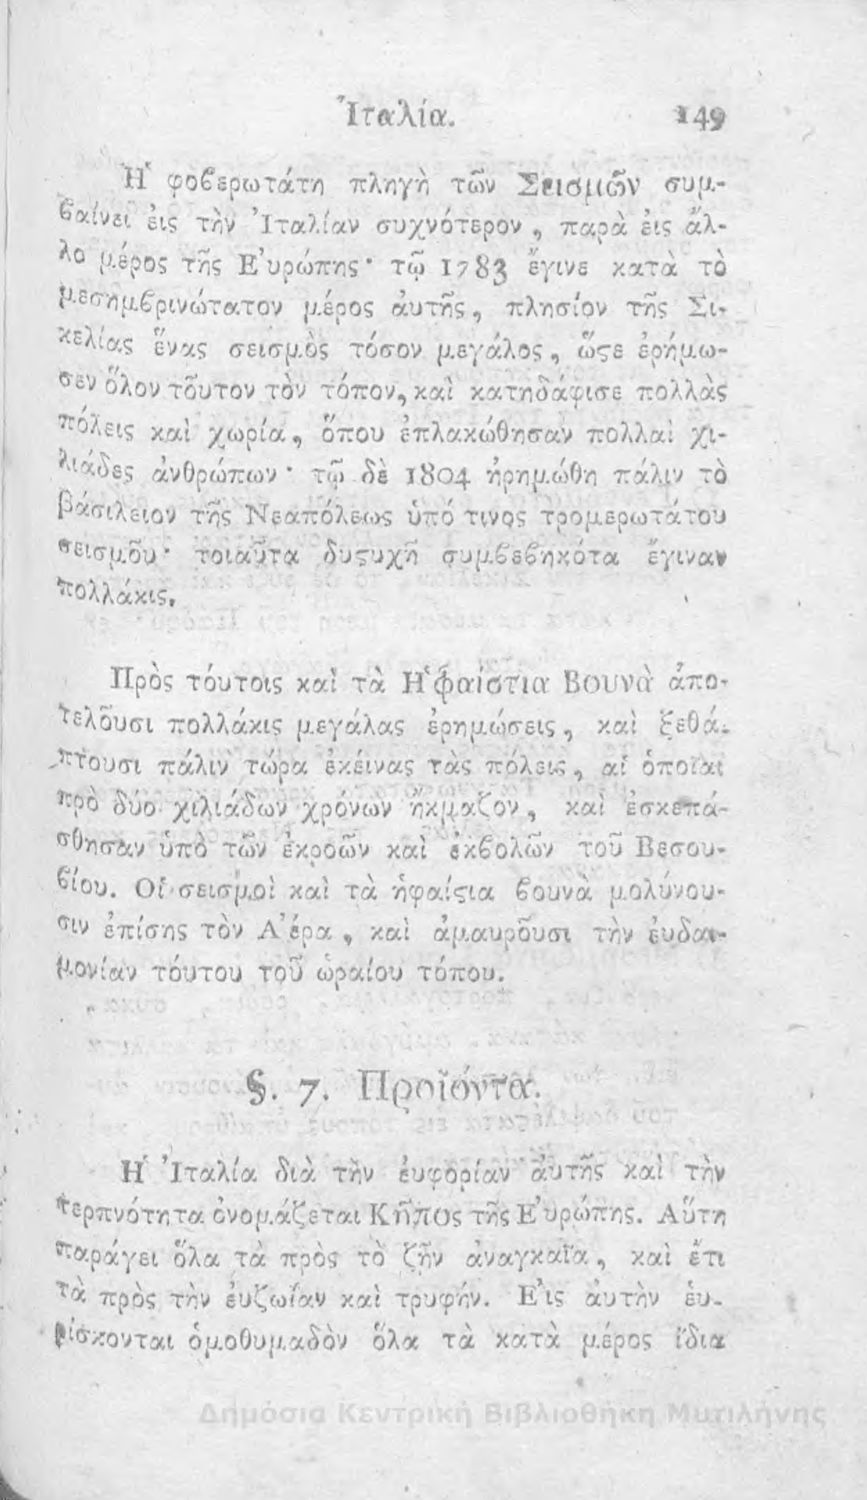 Ἰταλία. 149
Ἡ φοβερωτάτη πληγὴ τῶν Σεισμῶν συμ-
βαίνει ἐις τὴν Ἰταλίαν συχνότερον, παρὰ ἐις ἄλ-
λο μέρος τῆς Ἐυρώπης· τῷ 1783 ἔγινε κατὰ τὸ
μεσημβρινώτατον μέρος ἀυτῆς, πλησίον τῆς Σι-
κελίας ἕνας σεισμὸς τόσον μεγάλος, ὥϛε ἐρήμω-
σεν ὅλον τοῦτον τὸν τόπον, καὶ κατηδάφισε πολλὰς
πόλεις καὶ χωρία, ὅπου ἐπλακώθησαν πολλαὶ χι-
λιάδες ἀνθρώπων· τῷ δὲ 1804 ἠρημώθη πάλιν τὸ
βάσιλειον τῆς Νεαπόλεως ὑπό τινος τρομερωτάτου
σεισμοῦ· τοιαῦτα δυϛυχῆ συμβεβηκότα ἔγιναν
πολλάκις.
Πρὸς τόυτοις καὶ τὰ Ἡφαίστια Βουνὰ ἀπο-
τελοῦσι πολλάκις μεγάλας ἐρημώσεις, καὶ ξεθά-
πτουσι πάλιν τώρα ἐκέινας τὰς πόλεις, αἱ ὁποῖαι
πρὸ δύο χιλιάδων χρόνων ἤκμαζον, καὶ ἐσκεπά-
σθησαν ὑπὸ τῶν ἐκροῶν καὶ ἐκβολῶν τοῦ Βεσου-
βίου. Οἱ σεισμοὶ καὶ τὰ ἡφαίϛια βουνὰ μολύνου-
σιν ἐπίσης τὸν Ἀέρα, καὶ ἀμαυροῦσι τὴν ἐυδαι-
μονίαν τόυτου τοῦ ὡραίου τόπου.
§. 7. Προϊόντα.
Ἡ Ἰταλία διὰ τὴν ἐυφορίαν ἀυτῆς καὶ τὴν
τερπνότητα ὀνομάζεται Κῆπος τῆς Ἐυρώπης. Αὕτη
παράγει ὅλα τὰ πρὸς τὸ ζῆν ἀναγκαῖα, καὶ ἔτι
τὰ πρὸς τὴν ἐυζωΐαν καὶ τρυφήν. Ἐις ἀυτὴν ἑυ-
ρίσκονται ὁμοθυμαδὸν ὅλα τὰ κατὰ μέρος ἴδια
Δημόσια Κεντρική Βιβλιοθήκη Μυτιλήνης